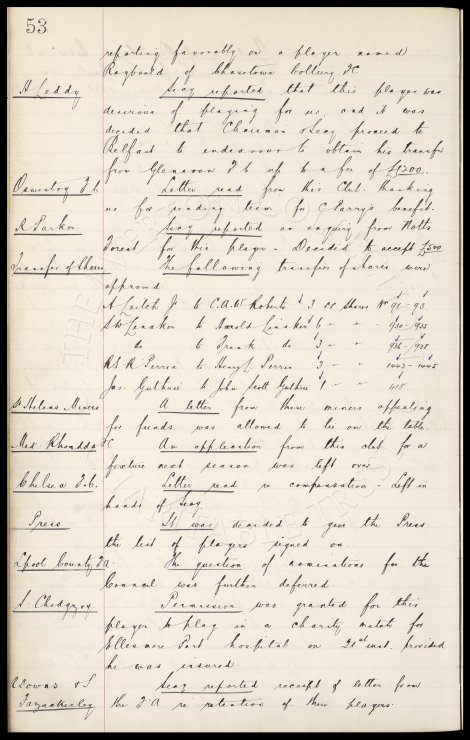 53
reporting favorably on a player named
Raybould of Chasetown Colliery FC
H Leddy Secy reported that this player was
desirous of playing for us, and it was
decided that Chairman & Secy proceed to
Belfast to endeavour to obtain his transfer
from Glenavon F.C up to a fee of £1200.
Oswestry F.C Letter read from this Club thanking
us for sending team for C Parry's benefit
A Parker Secy reported an enquiry from Notts
Forest for this player. Decided to accept £500
Transfer of Shares The following transfers of shares were
approved
A Leitch Jr to C.A.W. Roberts 3 shares No 91 - 93
to Harold Linaker 6 " " 930 - 935
do to Frank do 3 " " 936 - 938
Perrin to Henry L. Perrin 3 " " 1443 - 1445
Jas Guthrie to John Scott Guthrie 1 " " 418
St Helens Miners A letter from these miners appealing
for funds was allowed to lie on the table
Mid Rhondda FC An application from this club for a
fixture next season was left over
Chelsea F.C. Letter read re compensation - Left in
hands of Secy
Press It was decided to give the Press
the list of players signed on.
Lpool County F.A. The question of nominations for the
Council was further deferred.
S. Chedgzoy Permission was granted for this
player to play in a charity match for
Ellesmere Port hospital on 21st inst. provided
he was insured.
Downs & S Secy reported receipt of letter from
Fazackerley the F.A re retention of these players.